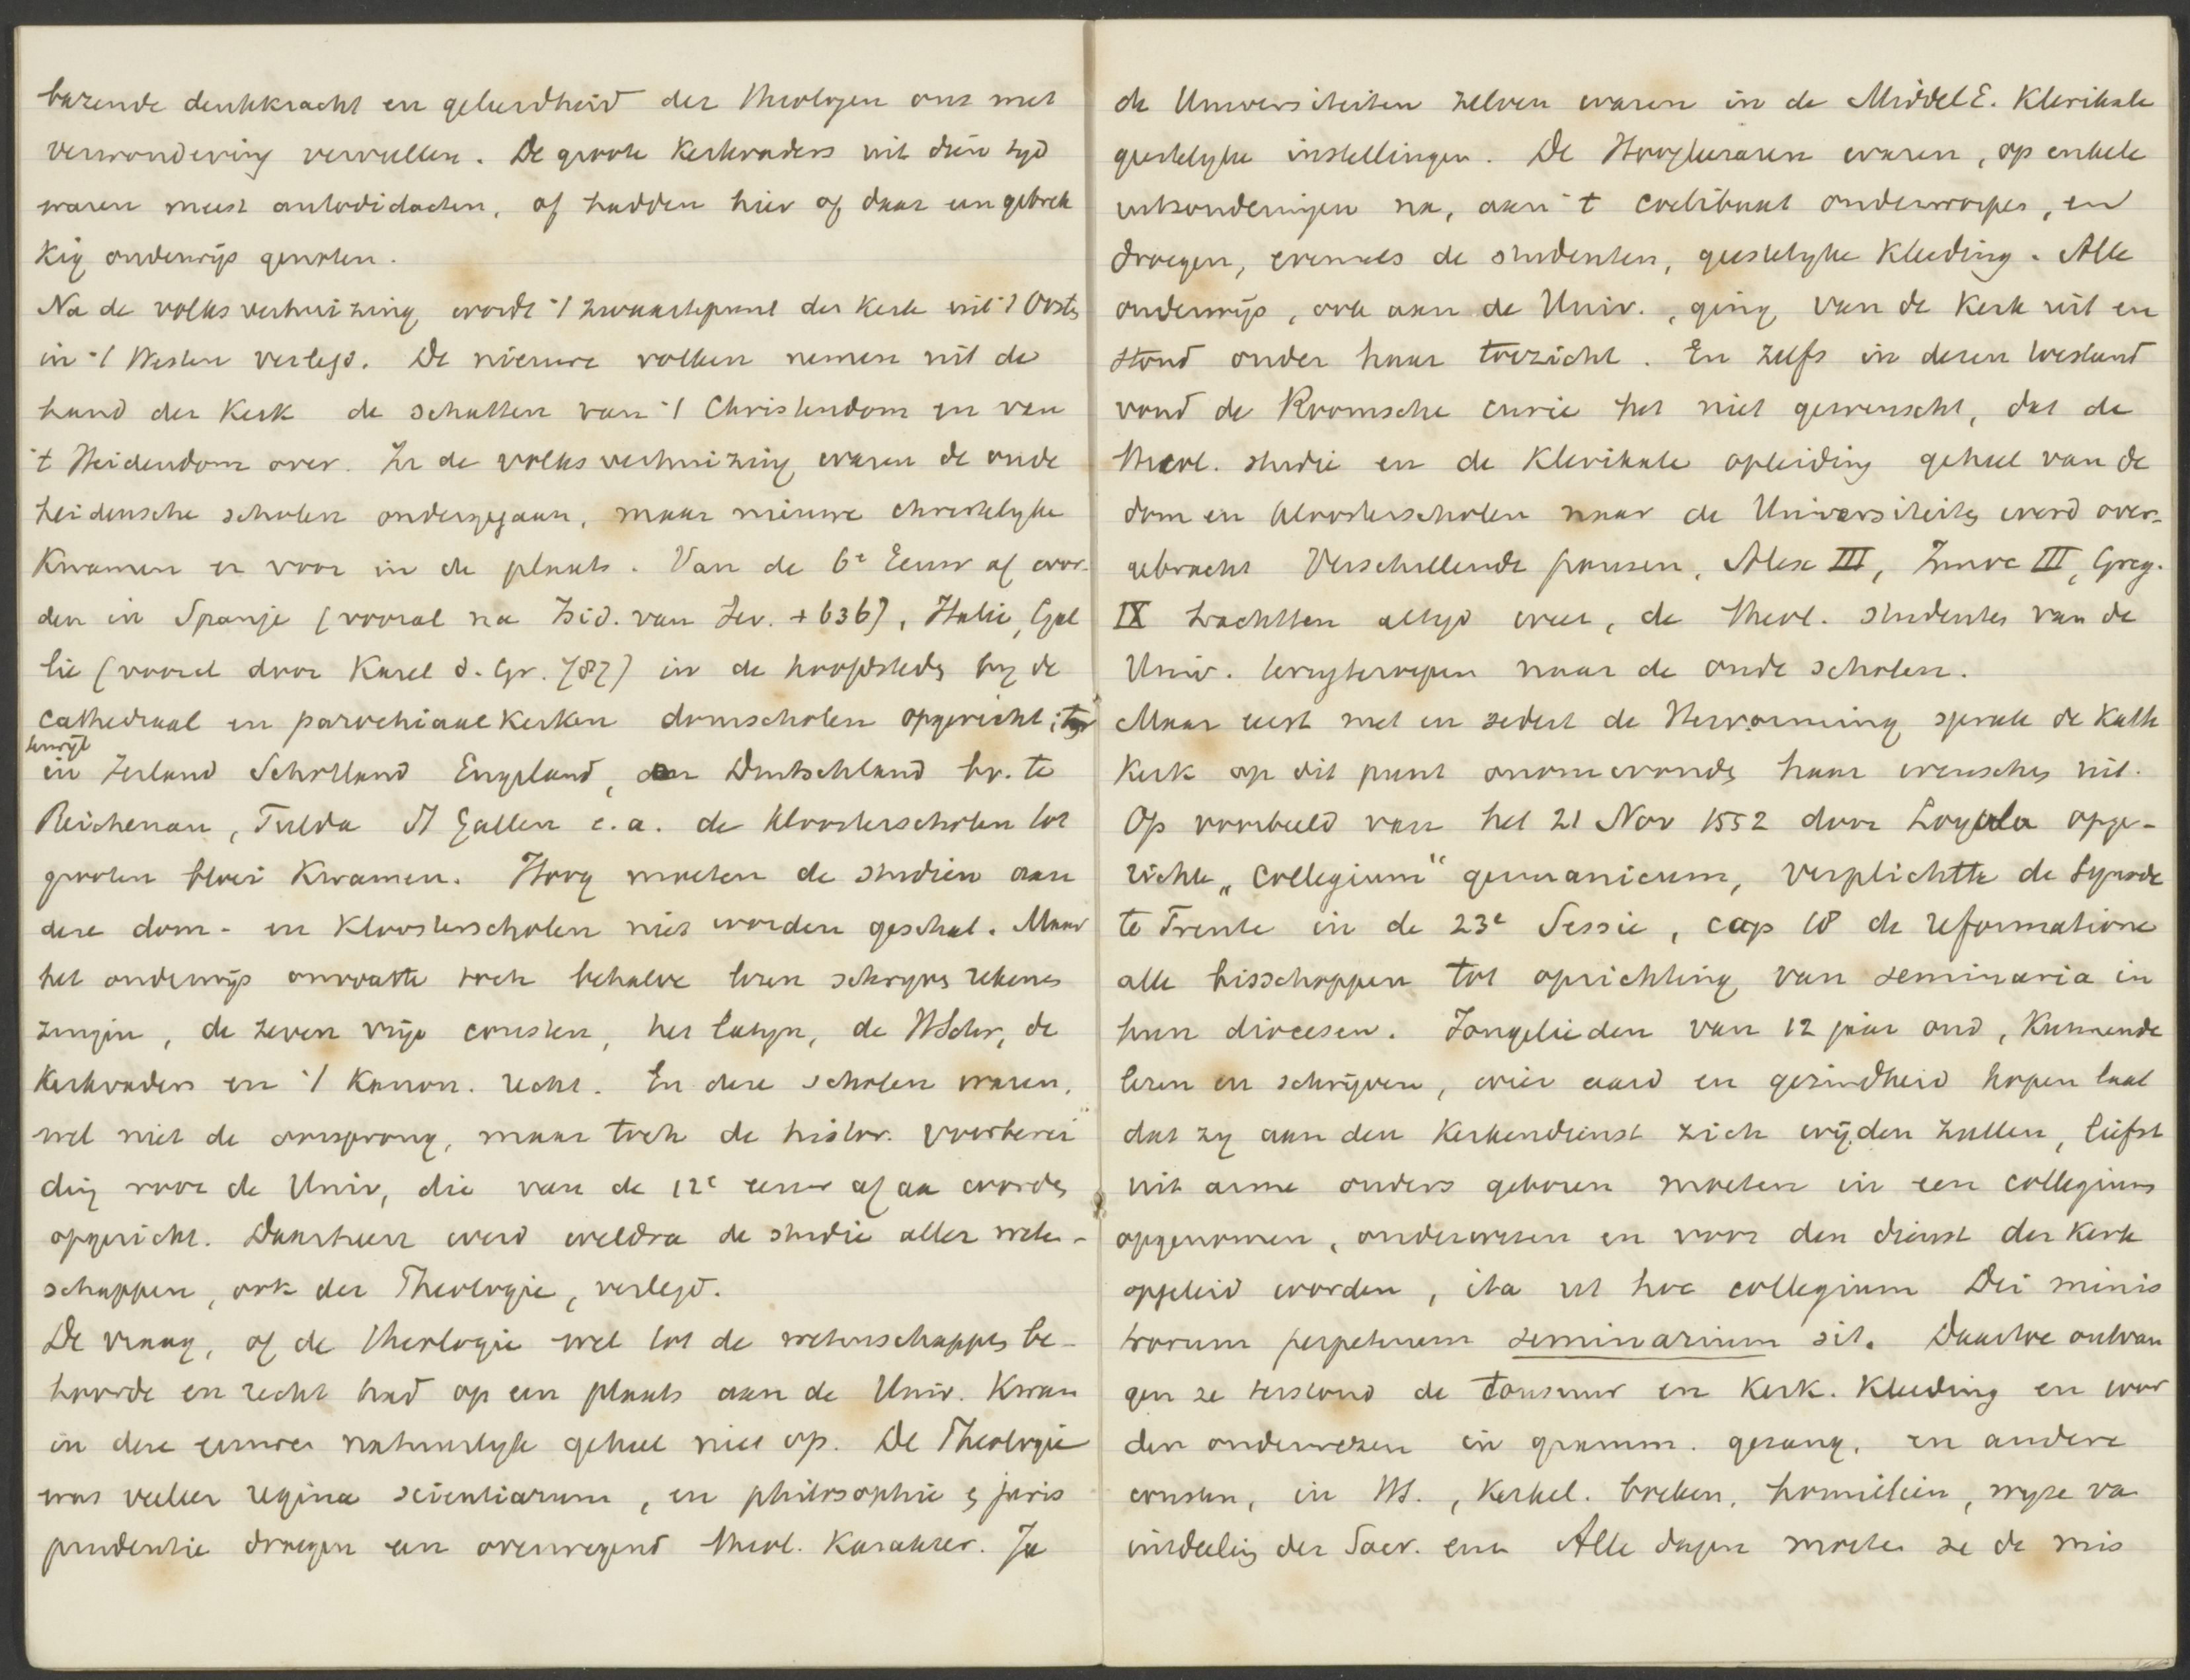 bazende denkkracht en geleerdheid der theologen ons met
verwondering vervullen. De groote Kerkvaders uit dien tyd
waren meest autodidacten, of hadden hier of daar een gebrek
kig onderwijs genoten.
Na de volksverhuizing wordt 't zwaartepunt der Kerk uit 't Oosten
in 't Westen verlegd. De nieuwe volken nemen uit de
hand der Kerk de schatten van 't Christendom en van
't Heidendom over. In de volksverhuizing waren de oude
heidensche scholen ondergegaan, maar nieuwe christelyke
Kwamen er voor in de plaats. Van de 6e Eeuw af wor-
den in Spanje (vooral na Isid. van Sev. + 636), Italie, Gal
lie (vooral door Karel d. Gr. 787) in de hoofdsteden by de
cathedraal en parochiaal Kerken domscholen opgericht;
terwijl
in Ierland Schotland Engeland, Duitschland bv. te
Reichenau, Fulda St Gallen e.a. de kloosterscholen tot
grooten bloei Kwamen. Hoog moeten de studien aan
deze dom- en Kloosterscholen niet worden geschat. Maar
het onderwijs omvatte toch behalve lezen schryven rekenen
zingen, de zeven vrije consten, het latyn, de HSchr, de
Kerkvaders en 't Kanon. recht. En deze scholen waren,
wel niet de oorsprong, maar toch de histor. voorberei
ding voor de Univ, die van de 12e eeuw af aan worden
opgericht. Daarheen werd weldra de studie aller weten-
schappen, ook der Theologie, verlegd.
De vraag, of de theologie wel tot de wetenschappen be-
hoorde en recht had op een plaats aan de Univ. Kwam
in deze eeuwen natuurlyk geheel niet op. De Theologie
was veeleer regina scientiarum, en philosophie & juris
prudentie droegen een overwegend theol. Karakter. Ja
de Universiteiten zelven waren in de MiddelE. Klerikale
geestelyke instellingen. De Hoogleeraren waren, op enkele
uitzonderingen na, aan 't coelibaat onderworpen, en
droegen, evenals de studenten, geestelyke Kleeding. Alle
onderwijs, ook aan de Univ., ging van de Kerk uit en
stond onder haar toezicht. En zelfs in dezen toestand
vond de Roomsche curie het niet gewenscht, dat de
theol. studie en de Klerikale opleiding geheel van de
dom en kloosterscholen naar de Universiteiten werd over-
gebracht Verschillende pausen, Alex III, Innoc III, Greg.
IX trachtten altyd weer, de theol. studenten van de
Univ. terugteroepen naar de oude scholen.
Maar eerst met en sedert de Hervorming sprak de Kath
Kerk op dit punt onomwonden haar wenschen uit.
Op voorbeeld van het 21 Nov 1552 door Loyola opge-
richte „Collegium“ germanicum, verplichtte de Synode
te Trente in de 23e Sessie, cap 18 de reformatione
alle bisschoppen tot oprichting van seminaria in
hun diocesen. Jongelieden van 12 jaar oud, Kunnende
lezen en schrijven, wier aard en gezindheid hopen laat
dat zy aan den Kerkendienst zich wijden zullen, liefst
uit arme ouders geboren moeten in een collegium
opgenomen, onderwezen en voor den dienst der Kerk
opgeleid worden, ita ut hoc collegium Dei minis
trorum perpetuum seminarium sit. Daartoe ontvan
gen ze terstond de tonsuur en Kerk. Kleeding en wor
den onderwezen in gramm. gezang, en andere
consten, in HS., Kerkel. boeken, homilieën, wyze va
uitdeeling der Sacr. enz Alle dagen moeten ze de mis